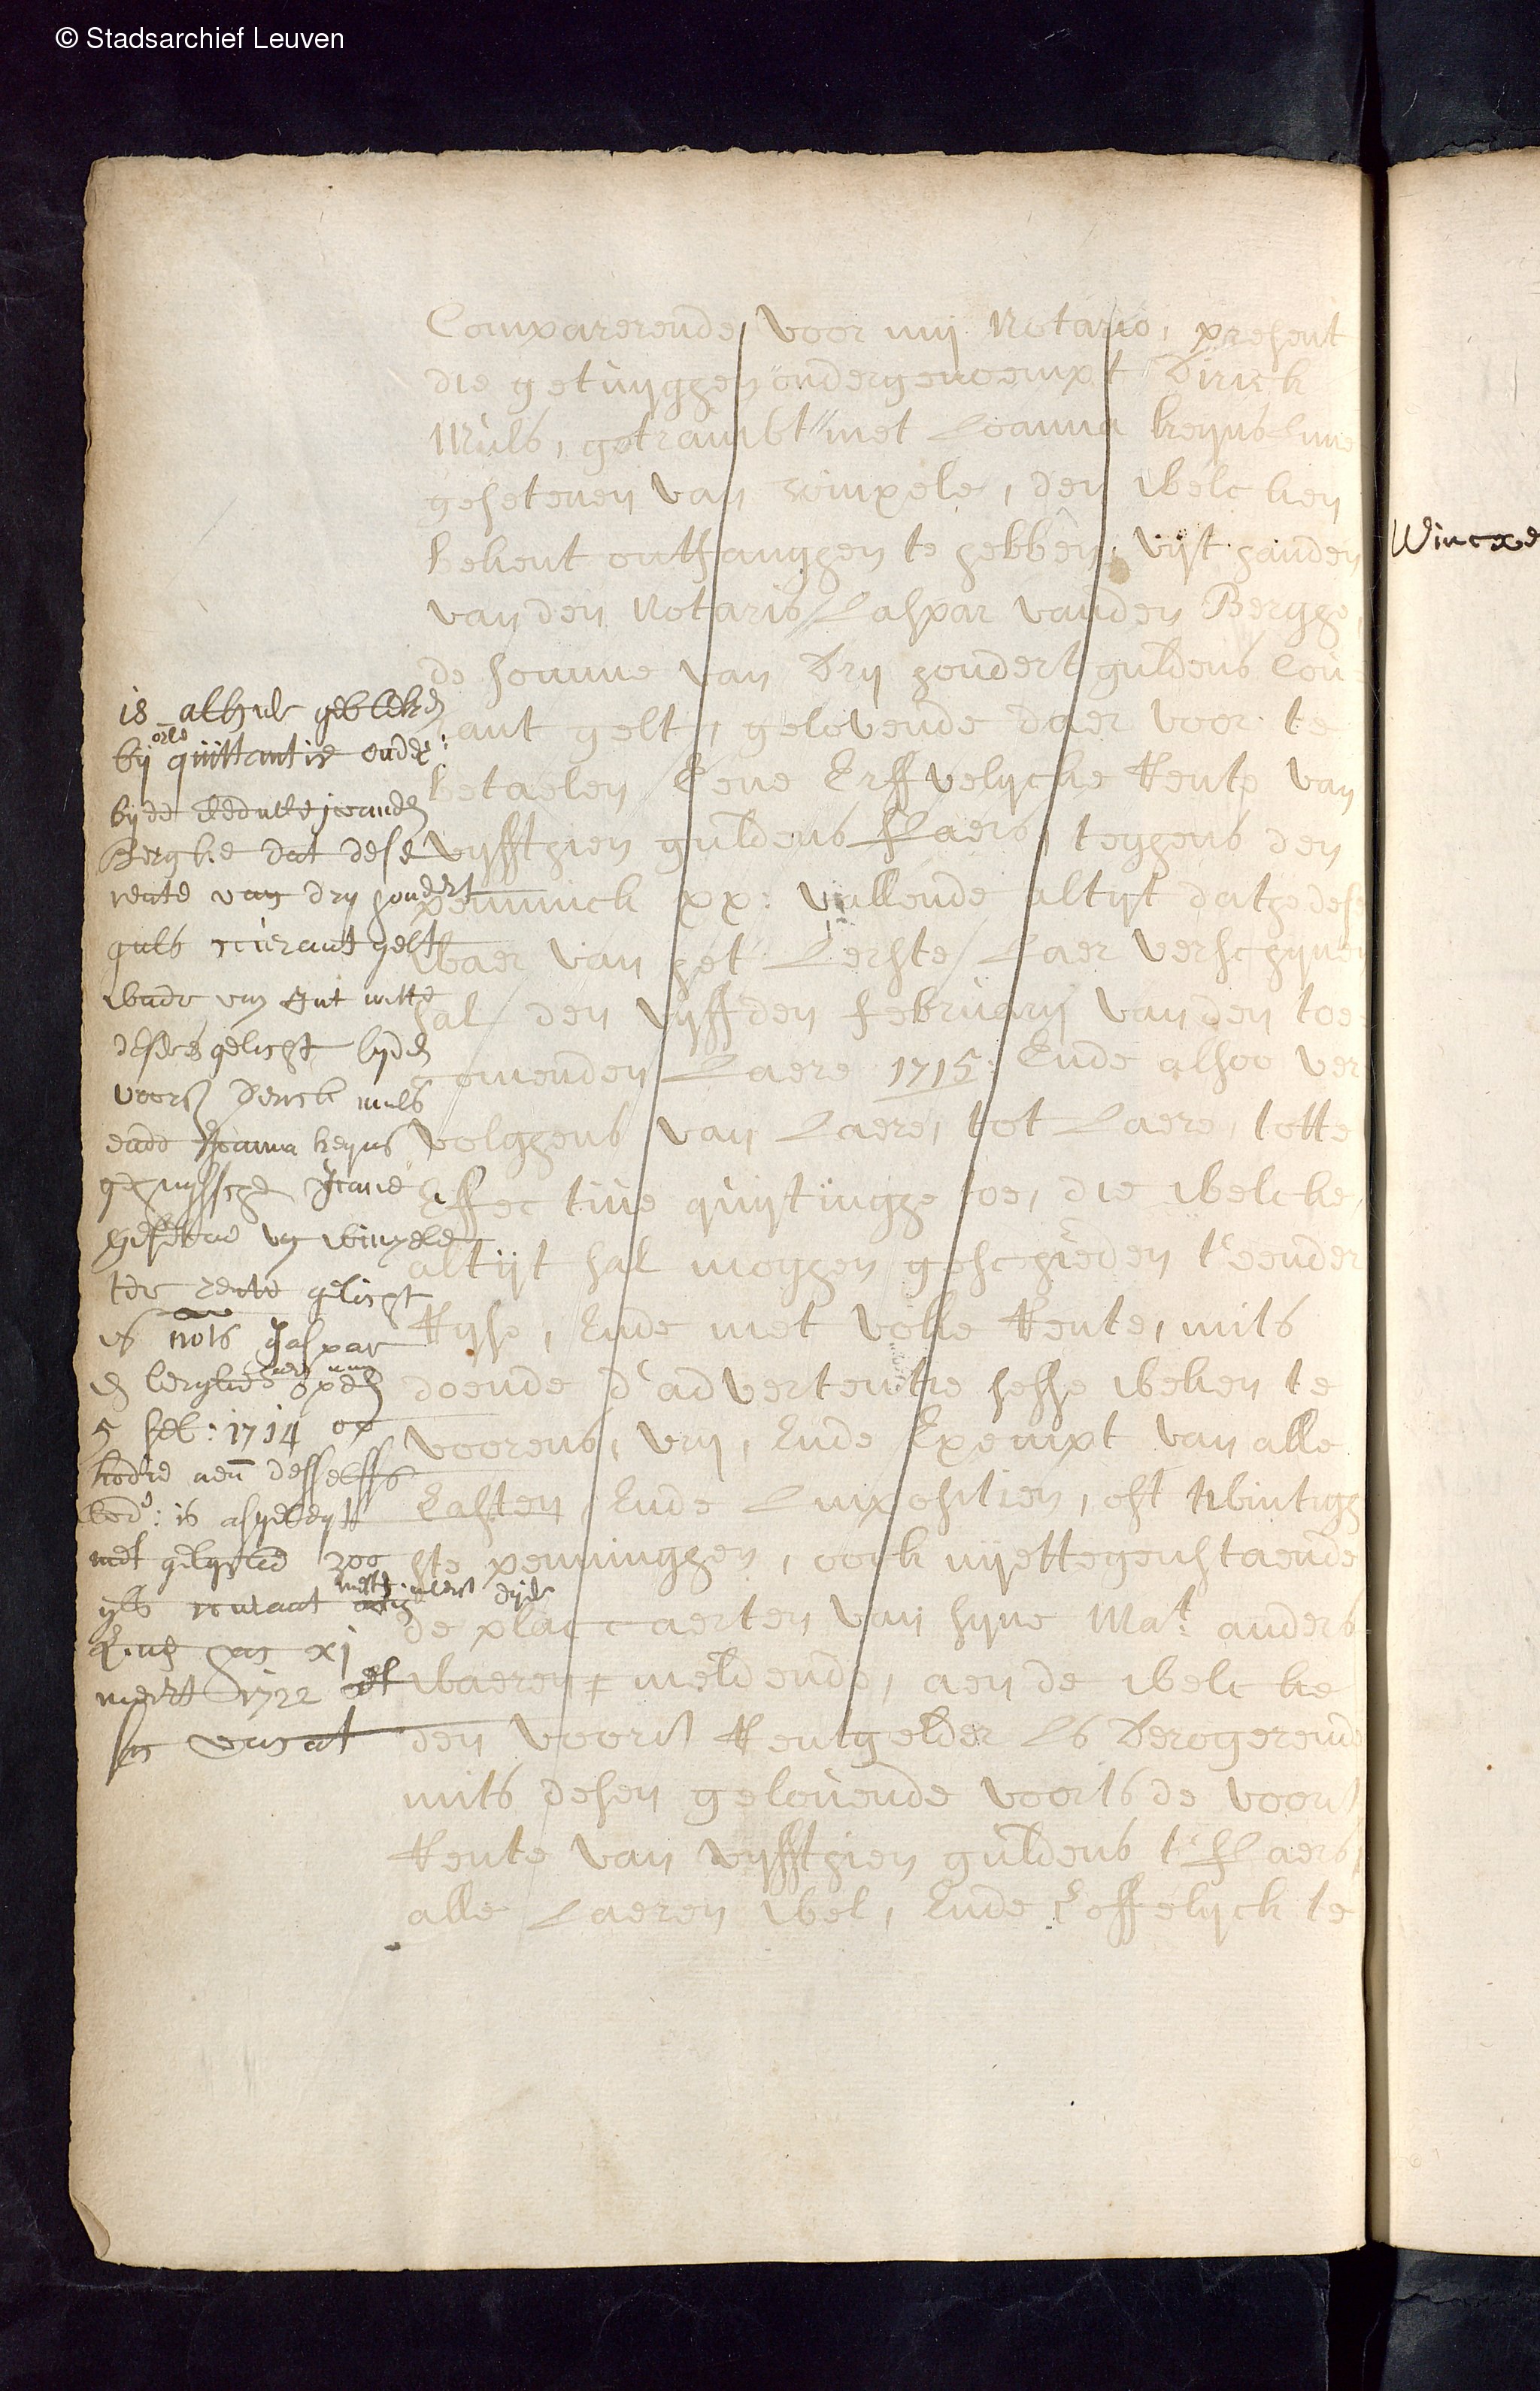 © Stadsarchief Leuven
Comparerende voor mij Notario, present
die getuijghen ondergenoempt Dirick
Muls, getrauwbt met Joanna keijns Inne
gesetenen van wimpele, den welcken
bekent onthanghen te hebben, uijt handen
van den Notaris Jaspar vanden Berghe,
de somme van Drij hondert guldens Cou
rant gelt, gelovende daer voor te
betaelen Eene Erffvelijcke Rente van
vijffthien guldens sJaers, teghens den
penninck xx: vallende altijt datshe dese
waer van het Ierste Jaer verschijnen
sal den vijffden februarij vanden toe
comenden Jaere 1715: Ende alsoo ver
volghens van Jaere, tot Jaere, totte
Effectiue quijtinghe toe, die welcke,
altijt sal moghen geschieden t'eender
Rijse, Ende met volle Rente, mits
doende d'advertentie sesse weken te
voorens, vrij, Ende Exempt van alle
Lasten Ende Impositien, oft twintigh
ste penninghen, oock nijettegenstaende
de placcaerten van sijne Mat. anders
waeren meldende, aen de welcke
den voors Rentgelder Is Derogerende
mits desen gelouende voorts de voors
Rente van vijffthien guldens t'sJaers,
alle Jaeren wel, Ende Loffelijck te
is alhier gebleken
bij quittantie onder
bijde Weduwe vanden
Berghe dat dese
rente van drij hondert
guls courant gelt
desers gelicht bijden
voors Derick muls
ende Joanna keijns
gesetene van wimpele
ter rente gelicht
is nots Jaspar
5 feb: 1714 op
hodie aen desselffs
wed: is afgeleyt
met gelycke 300
gls courant
xj
meert 1722
Wincxe